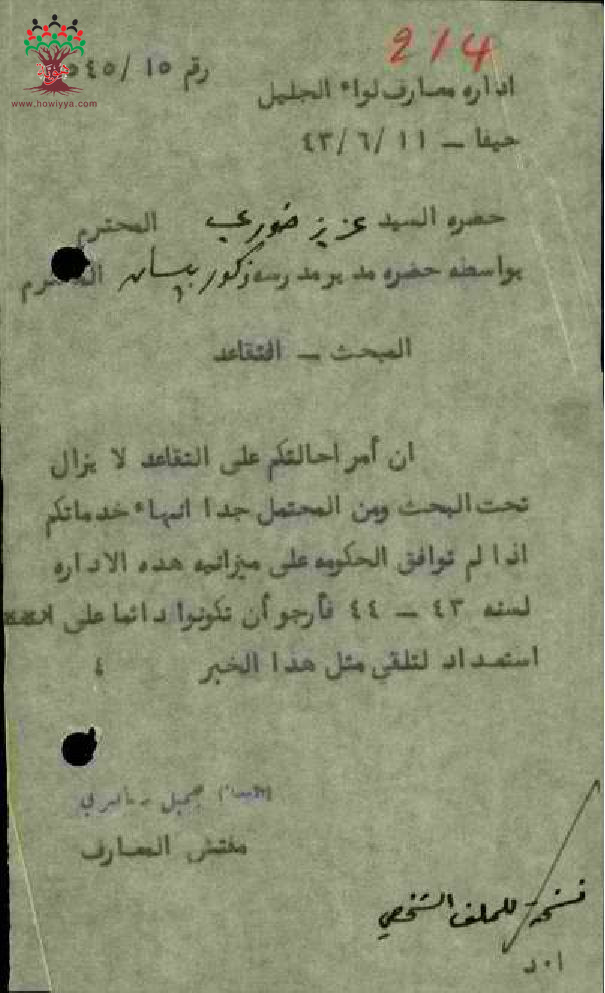 2/4
www.howiyya.com
رقم ١٥ /٥٤٥
اداره معارف لواء الجليل
حيفا – ١١ /٦ /٤٣
حضره السيد عزيز خوري المحترم
بواسطه حضره مدير مدرسه ذكور بيسان المحترم
المبحث – التقاعد
ان أمر احالتكم على التقاعد لا يزال
تحت البحث ومن المحتمل جدا انهاء خدماتكم
اذا لم توافق الحكومه على ميزانيه هذه الاداره
لسنه ٤٣ – ٤٤ فأرجو أن تكونوا دائما على
استعداد لتلقي مثل هذا الخبر ٤
(الامضاء) جميل
مفتش المعارف
نسخه للملف الشخصي
ا٠د